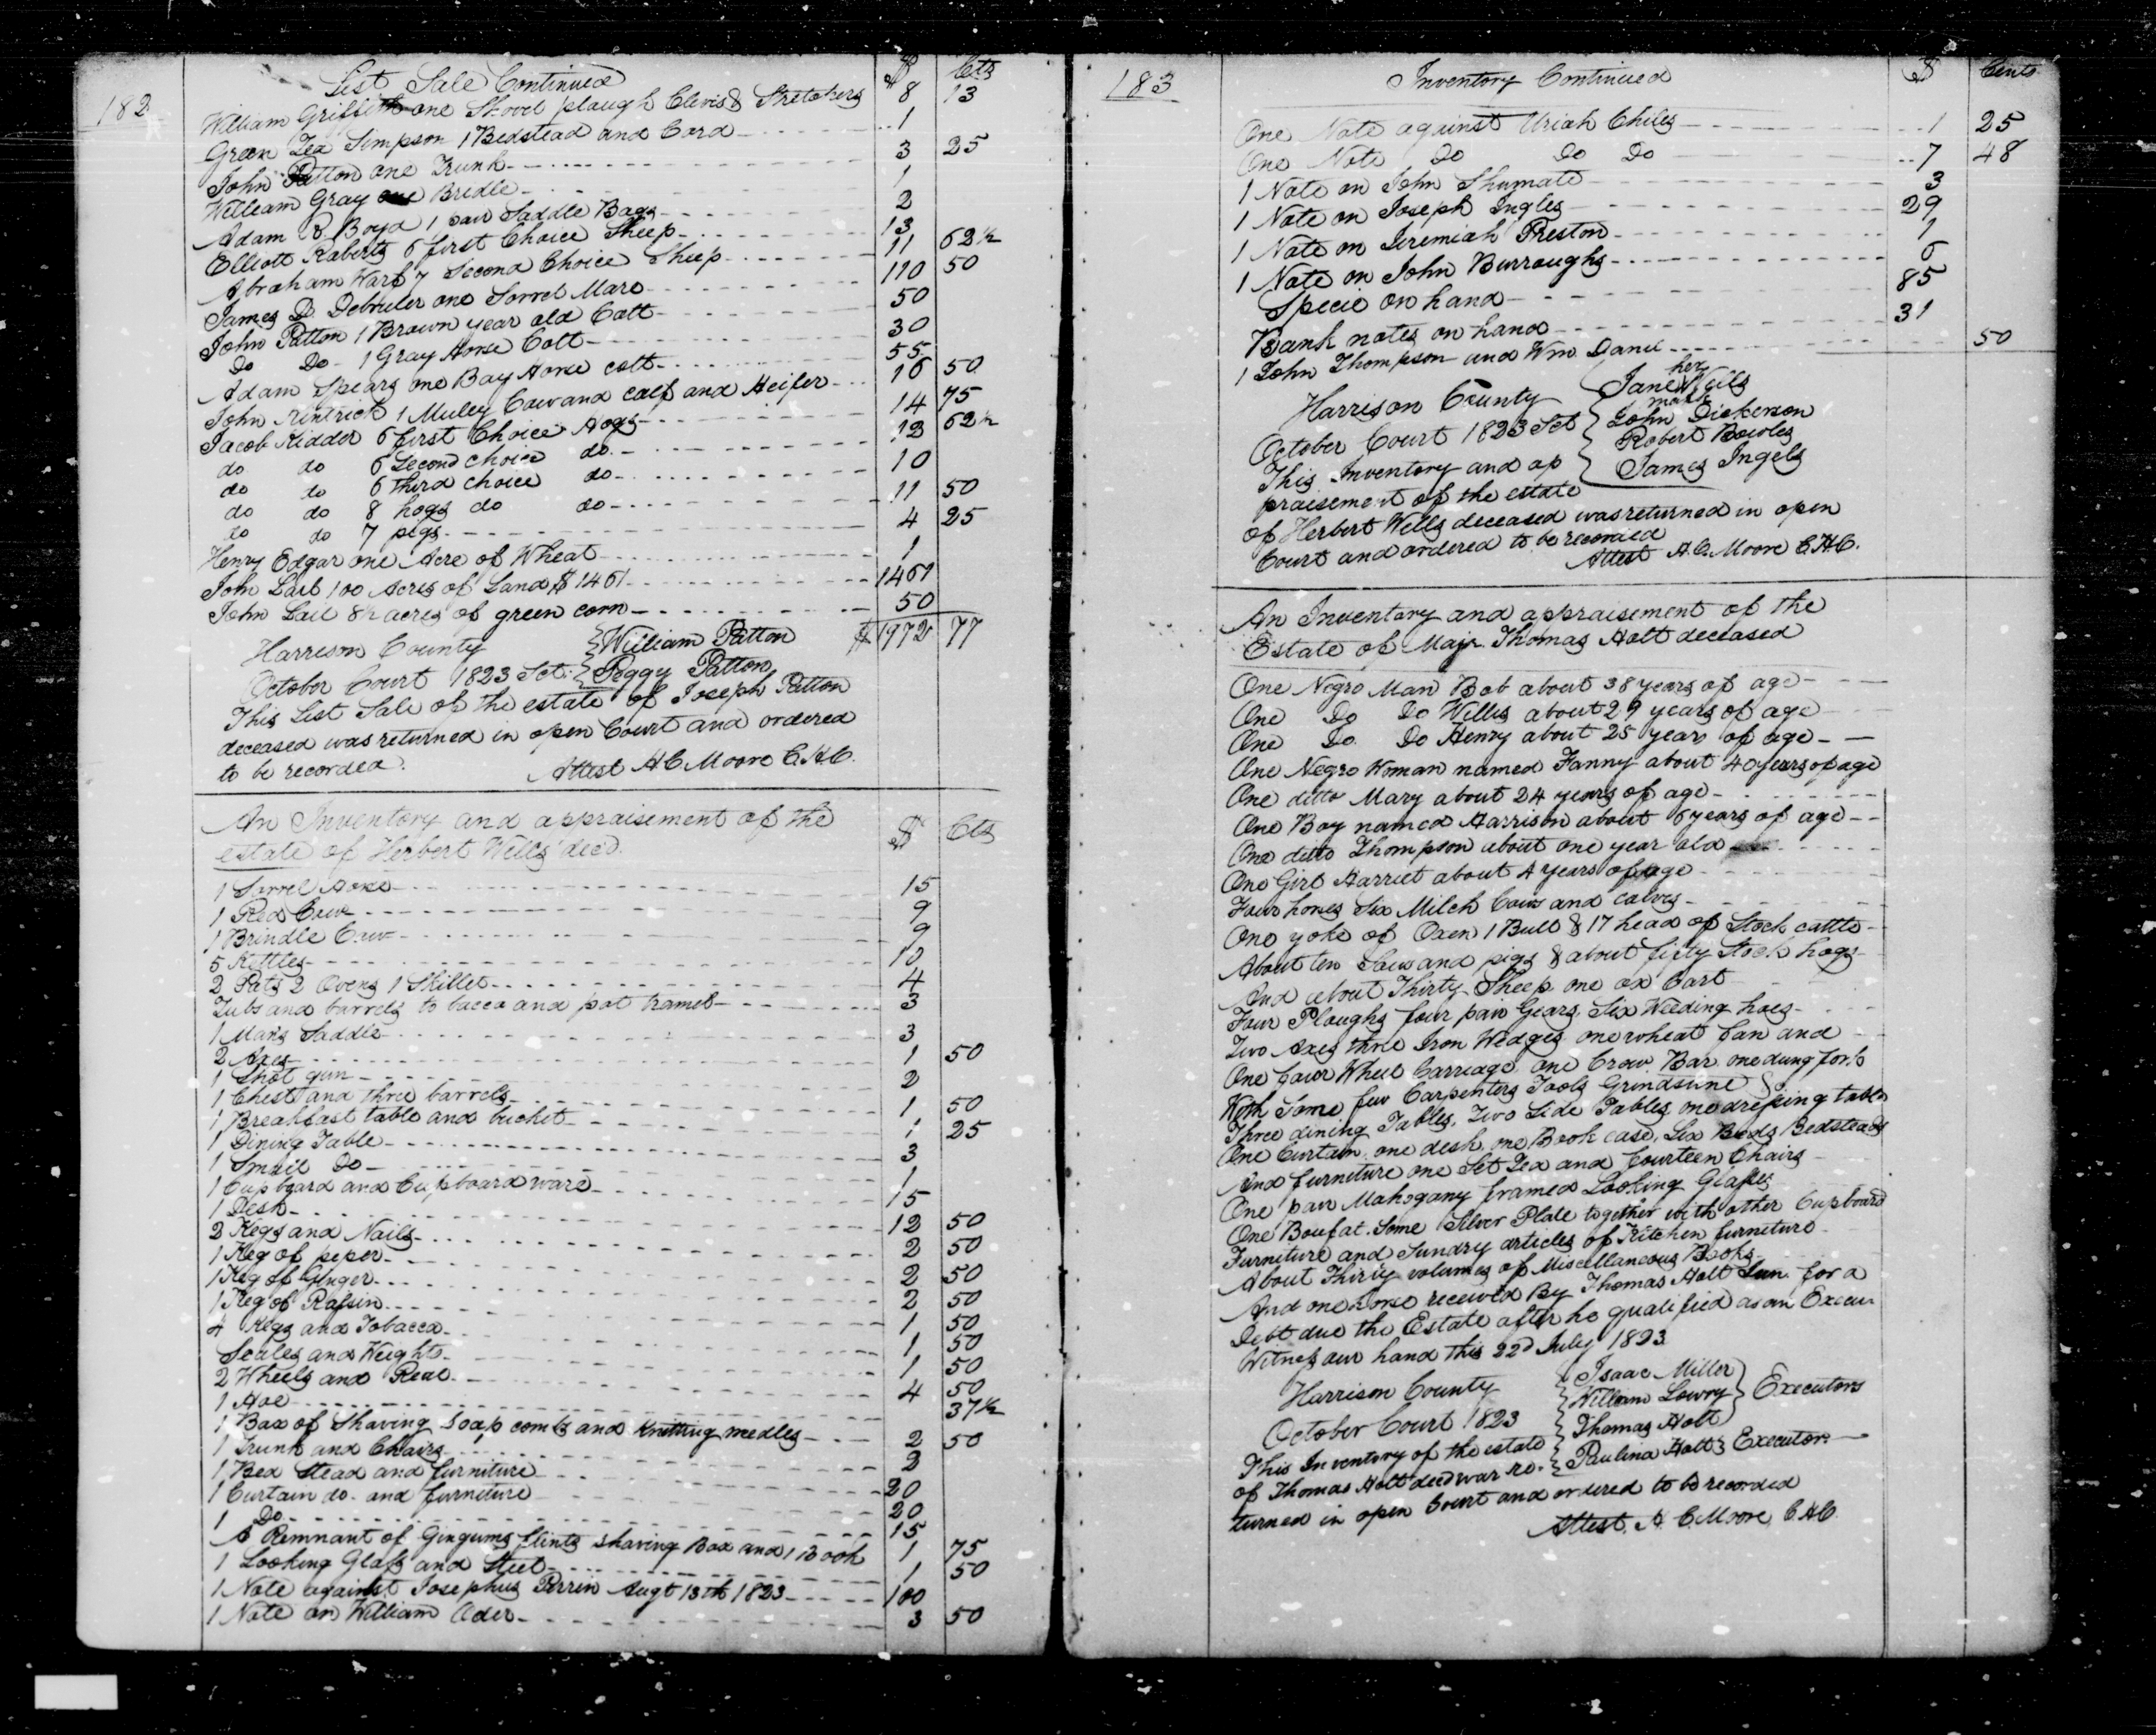 182
List Sale Continued $ Cts
William Griffith one Shovel plaugh Clevis & Stretchers 8 13
Green Lea Simpson 1 Bedstead and Cord 1
John Patton one Trunk 3 25
William Gray one Bridle 1
Adam R. Boyd 1 pair Saddle Bags 2
Elliott Roberts 6 first Choice Sheep 13
Abraham Warf 7 Second Choice Sheep 11 62½
James D Debruler one Sorrel Mare 110 50
John Patton 1 Brown year old Colt 50
Do Do 1 Gray Horse Colt 30
Adam Spears one Bay Horse colt 55
John 1 Muley Cow and calf and Heifer 16 50
Jacob Kidder 6 first Choice Hogs 14 75
do do 6 Second choice do 12 62½
do do 6 third choice do 10
do do 8 hogs do do 11 50
do do 7 pigs 4 25
Henry Edgar one Acre of Wheat 1
John Lail 100 Acres of Land $1461 1461
John Lail 8½ acres of green corn 50
$1972 77
Harrison County } William Patton
October Court 1823 Sct. } Peggy Patton
This List Sale of the estate of Joseph Patton
deceased was returned in open Court and ordered
to be recorded.
Attest H C Moore C.H.C.
An Inventory and appraisement of the
estate of Herbert Wells decd. $ Cts
1 Sorrel Horse 15
1 Red Cow 9
1 Brindle Cow 9
5 Kettles 10
2 Pots 2 Ovens 1 Skillet 4
Tubs and barrels to bacco and pot tramel 3
1 Mans Saddle 3
2 Axes 1 50
1 Shot gun 2
1 Chest and three barrels 1 50
1 Breakfast table and bucket 1 25
1 Dining Table 3
1 Small Do 1
1 Cupboard and Cupboard ware 15
1 Desk 12 50
2 Kegs and Nails 2 50
1 Keg of peper 2 50
1 Keg of Ginger 2 50
1 Keg of Rafsin 1 50
4 Kegs and Tobacco 1 50
Scales and Weights 1 50
2 Wheels and Real 4 50
1 Hoe 37½
1 Box of Shaving soap combs and Knitting needles 2 50
1 Trunk and Chairs 2
1 Bed Stead and furniture 20
1 Curtain do. and furniture 20
1 Do 15
A Remnant of Gingums flints shaving Box and 1 Book 1 75
1 Looking Glafs and Steel 1 50
1 Note against Josephus Perrin Augt 13th 1823 100
1 Note on William Ader 3 50
183
Inventory Continued $ Cents
One Note against Uriah Chiles 1 25
One Note Do Do Do 7 48
1 Note on John Shumate 3
1 Note on Joseph Ingles 29
1 Note on Jeremiah Preston 1
1 Note on John Burroughs 6
Specie on hand 85
Bank notes on hand 31
1 John Thompson and Wm. Danel 50
her
Harrison County { Jane Wells
mark
October Court 1823 Sct { John Dickerson
Robert Bowles
This Inventory and ap { James Ingels
praisement of the estate
of Herbert Wells deceased was returned in open
Court and ordered to be recorded
Attest H.C. Moore C.H.C.
An Inventory and appraisement of the
Estate of Majr. Thomas Holt deceased
One Negro Man Bob about 38 years of age
One Do Do Willis about 29 years of age
One Do Do Henry about 25 years of age
One Negro Woman named Fanny about 40 years of age
One ditto Mary about 24 years of age
One Boy named Harrison about 6 years of age
One ditto Thompson about one year old
One Girl Harriet about 4 years of age
Four horses Six Milch Cows and calves
One yoke of Oxen 1 Bull & 17 head of Stock cattle
About ten Sows and pigs & about fifty Stock hogs
And about Thirty Sheep one ox Cart
Four Ploughs four pair Gears. Six Weeding hoes
Two Axes three Iron Wedges one wheat fan and
One four Wheel Carriage one Crow Bar one dung fork
With Some few Carpenters Tools Grindstone &
Three dining Tables, Two Side Tables, one drefsing table
One Curtain one desk one Book case, Six Beds Bedsteads
And furniture one Set Tea and fourteen Chairs
One pair Mahogany framed Looking Glafses
One Boufat. Some Silver Plate together with other Cupboard
Furniture and Sundry articles of Kitchen furniture
About Thirty volumes of Miscellaneous Books
And one horse received By Thomas Holt Jun. for a
Debt due the Estate after he qualified as an Execu
Witnefs our hand this 22d July 1823
Harrison County { Isaac Miller
William Lowry } Executors
October Court 1823 { Thomas Holt
This Inventory of the estate { Paulina Holt } Executor.
of Thomas Holt decd war re.
turned in open Court and ordered to be recorded
Attest. H. C. Moore C.H.C.